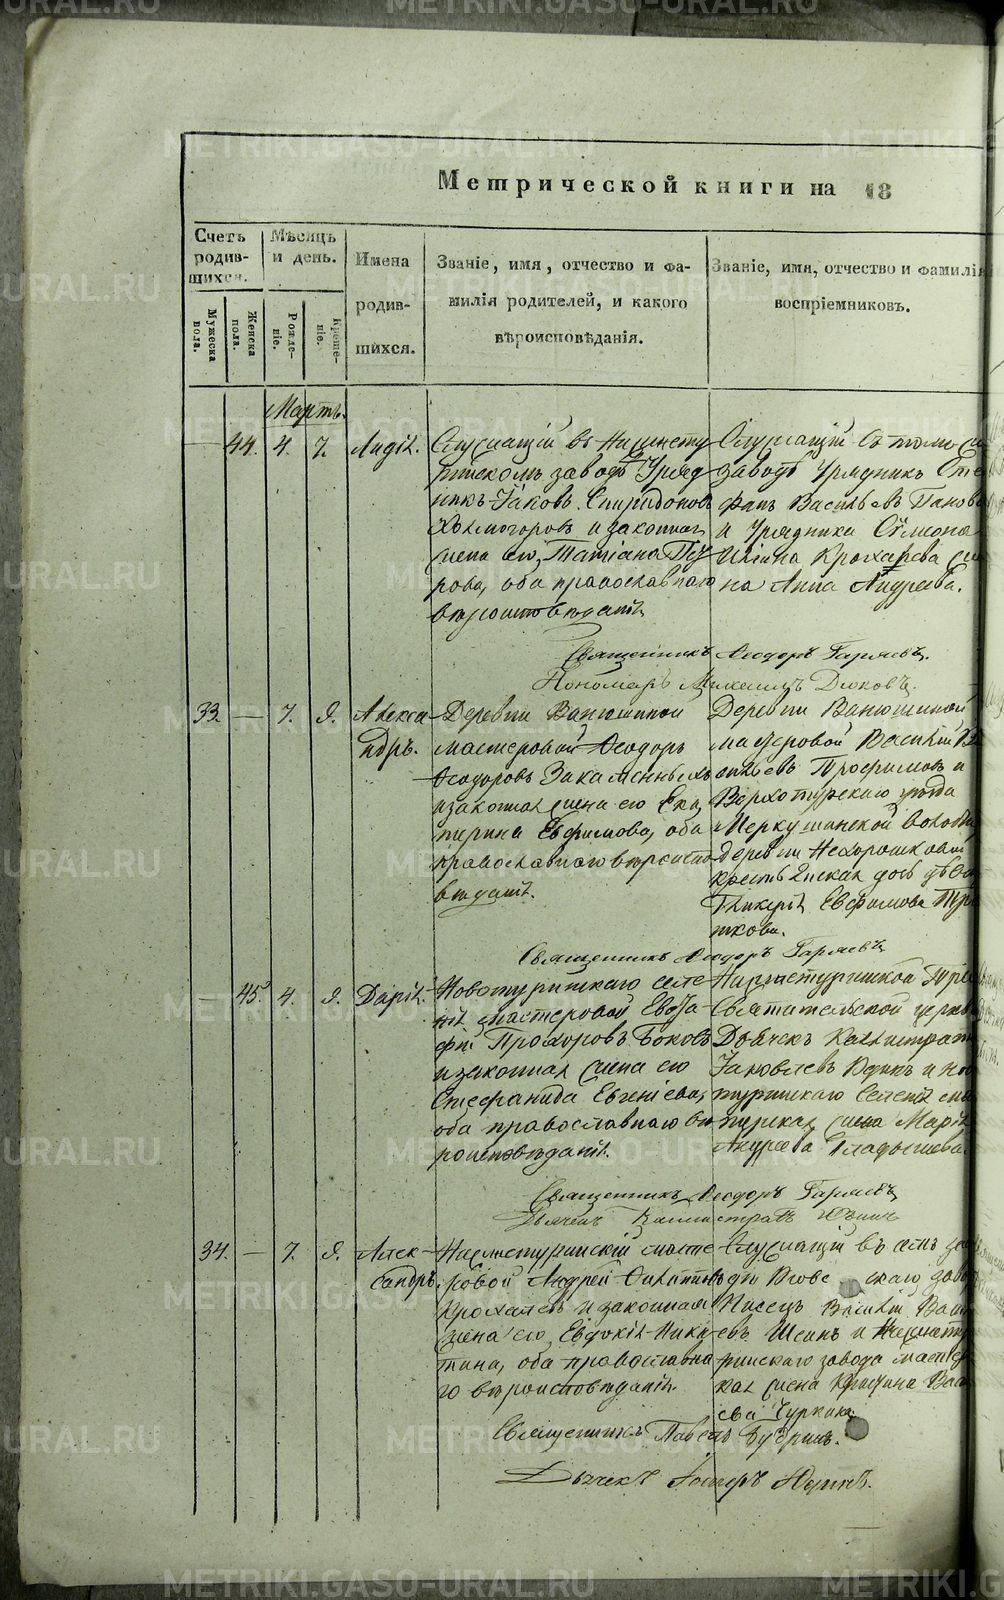 Метрической книги на 18
Счетъ родив-шихся.
Мужеска пола.
Женска пола.
Мѣсяцъ и день.
Рожде-ніе.
Креще-ніе.
Имена родив-шихся.
Званіе, имя, отчество и фа-
милія родителей, и какого
вѣроисповѣданія.
Званіе, имя, отчество и фамилія
воспріемниковъ.
Мартъ.
44. 4. 7. Лидія.
Служащій въ Нижнету
ринскомъ заводѣ Уряд
никъ Іаковъ Спиридоновъ
Холмогоровъ и законная
жена его, Татіана Пет
рова, оба православнаго
вѣроисповѣданія.
Служащій въ томъ же
заводѣ Урядникъ Сте
фанъ Васильевъ Панов
и Урядника Симеона
Ильина Крохалева же
на Анна Андреева.
Священникъ Ѳеодоръ Гаряевъ.
Пономарь Михаилъ Дюковъ.
33. — 7. 9. Алекса
ндръ.
Деревни Ванюшиной
мастеровой Ѳеодоръ
Ѳеодоровъ Закаменныхъ
и законная жена его Ека
терина Евфимова, оба
православнаго вѣроиспо
вѣданія.
Деревни Ванюшиной
мастеровой Василій Ва
сильевъ Трофимовъ и
Верхотурскаго уѣзда
Меркушинской волости
деревни
крестьянская дочь дѣвка
Гликерія Евфимова
Священникъ Ѳеодоръ Гаряевъ
— 45. 4. 9. Дарія.
Новотуринскаго селе
нія мастеровой Евста
фій Прохоровъ Боковъ
и законная жена его
Стефанида Евгеніева,
оба православнаго вѣ
роисповѣданія.
Нижнетуринской Трех
святительской церкви
Дьячекъ Каллистратъ
Іаковлевъ Юдинъ и но
туринскаго селенія мас
терская жена Марія
Андреева Гладышева.
Священникъ Ѳеодоръ Гаряевъ
Дьячекъ Каллистратъ Юдинъ
34. — 7. 9. Алек
сандръ.
Нижнетуринскій масте
ровой Андрей
Крохалевъ и законная
жена его Евдокія Ники
тина, оба православна
го вѣроисповѣданія.
Служащій въ семъ за
скаго заво
Писецъ Василій Васи
евъ Шеинъ и Нижнету
ринскаго завода мастер
кая жена Васи
ева Чуркина.
Священникъ Павелъ
Дьячекъ Юдинъ.
METRIKI.GASO-URAL.RU